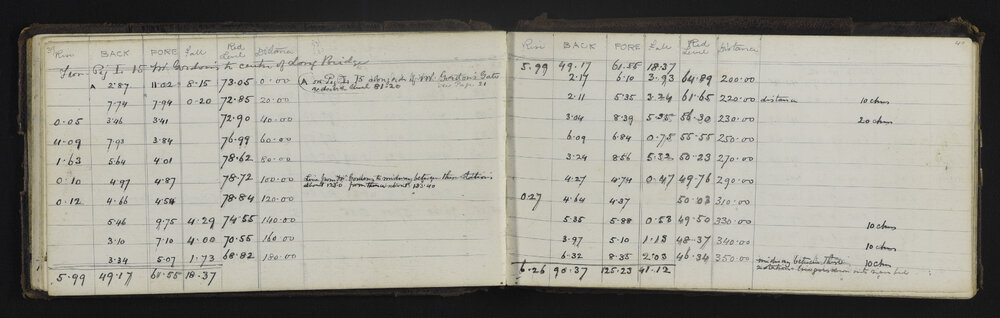 39
Rise BACK FORE Fall Red Level Distance
From Peg L 15 Mr Gordon's to centre of Long Bridge
A 2.87 11.02 8.15 73.05 0.00 A on Peg L 15 alongside of Mr Gordon's Gate
reduced level 81.20 see Page 21
7.74 7.94 0.20 72.85 20.00
0.05 3.46 3.41 72.90 40.00
4.09 7.93 3.84 76.99 60.00
1.63 5.64 4.01 78.62 80.00
0.10 4.97 4.87 78.72 100.00 Line from Mr Gordons to midway between these stations
about 1250 from thence about 133.40
0.12 4.66 4.54 78.84 120.00
5.46 9.75 4.29 74.55 140.00
3.10 7.10 4.00 70.55 160.00
3.34 5.07 1.73 68.82 180.00
5.99 49.17 61.55 18.37
40
Rise BACK FORE Fall Red Level Distance
5.99 49.17 61.55 18.37
2.17 6.10 3.93 64.89 200.00
2.11 5.35 3.24 61.65 220.00 distance 10 chns
3.04 8.39 5.35 56.30 230.00 20 chns
6.09 6.84 0.75 55.55 250.00
3.24 8.56 5.32 50.23 270.00
4.27 4.74 0.47 49.76 290.00
0.27 4.64 4.37 50.03 310.00
5.35 5.88 0.53 49.50 330.00 10 chns
3.97 5.10 1.13 48.37 340.00 10 chns
6.32 8.35 2.03 46.34 350.00 midway between these 10 chns
stations line goes down into
6.26 90.37 125.23 41.12